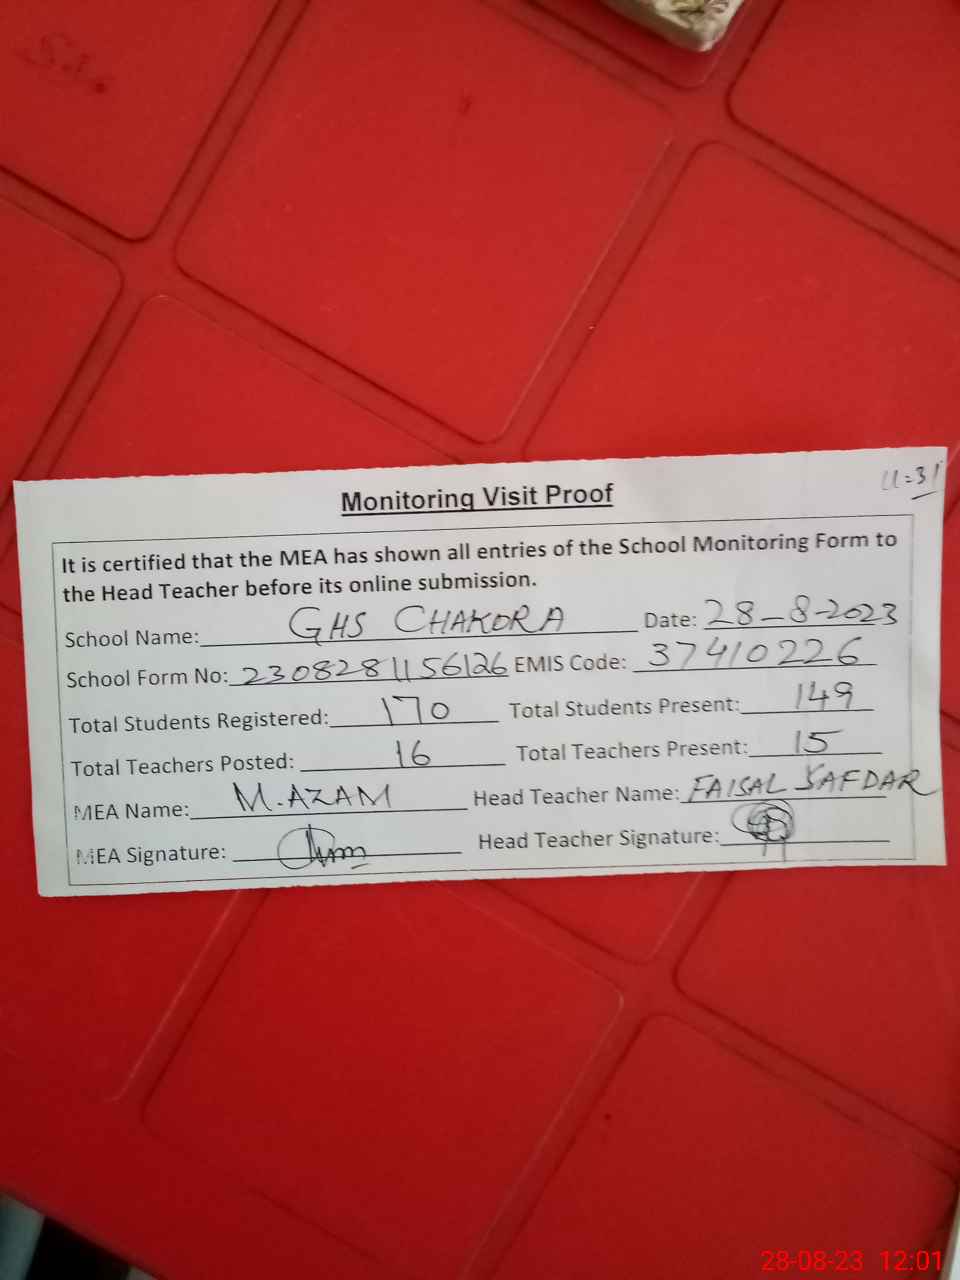 11:31
Monitoring Visit Proof
It is certified that the MEA has shown all entries of the School Monitoring Form to
the Head Teacher before its online submission.
School Name: GHS CHAKORA Date: 28-8-2023
School Form No: 2308281156126 EMIS Code: 37410226
Total Students Registered: 170 Total Students Present: 149
Total Teachers Posted: 16 Total Teachers Present: 15
MEA Name: M.AZAM Head Teacher Name: FAISAL SAFDAR
MEA Signature: Head Teacher Signature:
28-08-23 12:01